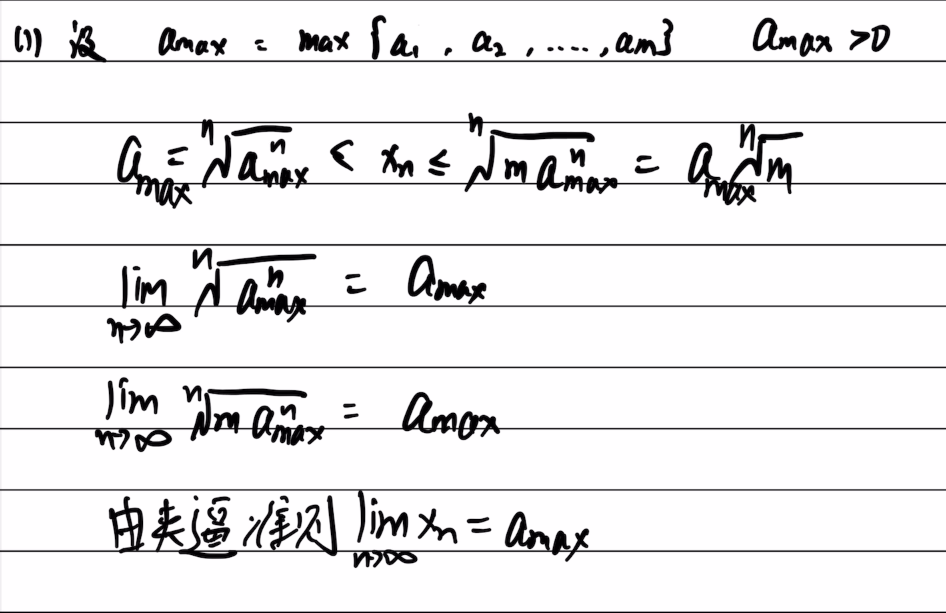 (1) 设 a_max = max {a_1, a_2, ....., a_m} a_max >0
a_max = \sqrt[n]{a_max^n} < x_n ≤ \sqrt[n]{m a_max^n} = a_max \sqrt[n]{m}
lim_{n→∞} \sqrt[n]{a_max^n} = a_max
lim_{n→∞} \sqrt[n]{m a_max^n} = a_max
由夹逼准则 lim_{n→∞} x_n = a_max